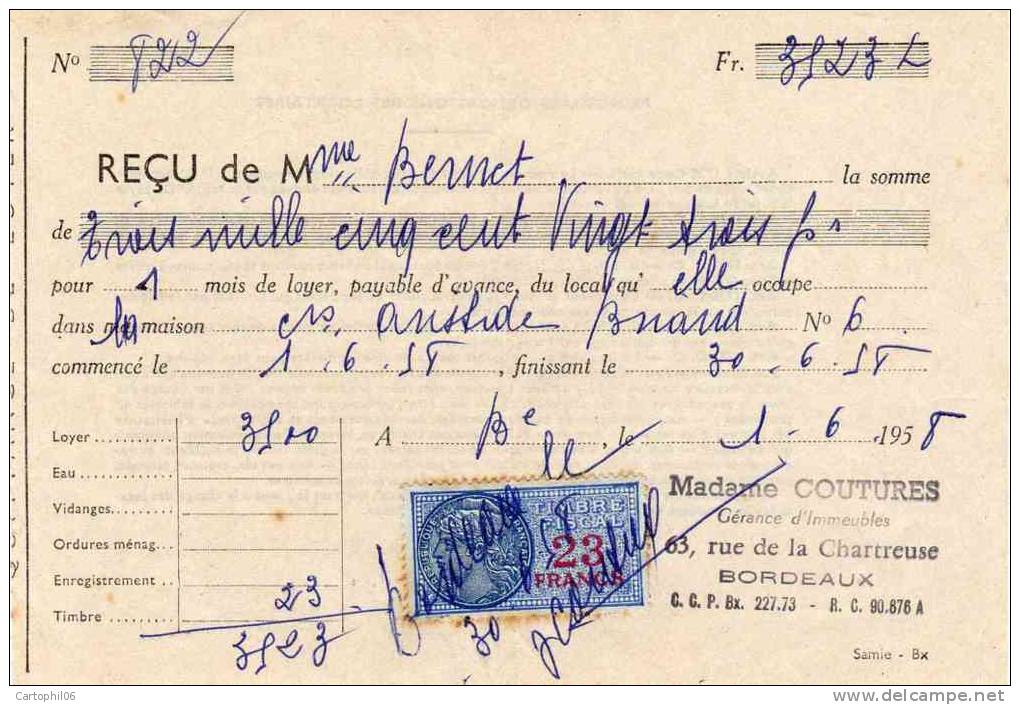 Nº 822 Fr. 3523 L
REÇU de Mme Bernet la somme
de trois mille cinq cent vingt trois frs
pour 1 mois de loyer, payable d'avance, du local qu'elle occupe
dans la maison crs aristide Briand Nº 6
commencé le 1.6.58, finissant le 30.6.58
Loyer 3500 A Be, le 1-6.1958
Eau
Vidanges
Ordures ménag.
Enregistrement
Timbre 23
3523
TIMBRE
FISCAL
23
FRANCS
30
Madame COUTURES
Gérance d'Immeubles
63, rue de la Chartreuse
BORDEAUX
C. C. P. Bx. 227.73 - R. C. 90.876 A
Samie - Bx
Cartophil06
www.delcampe.net